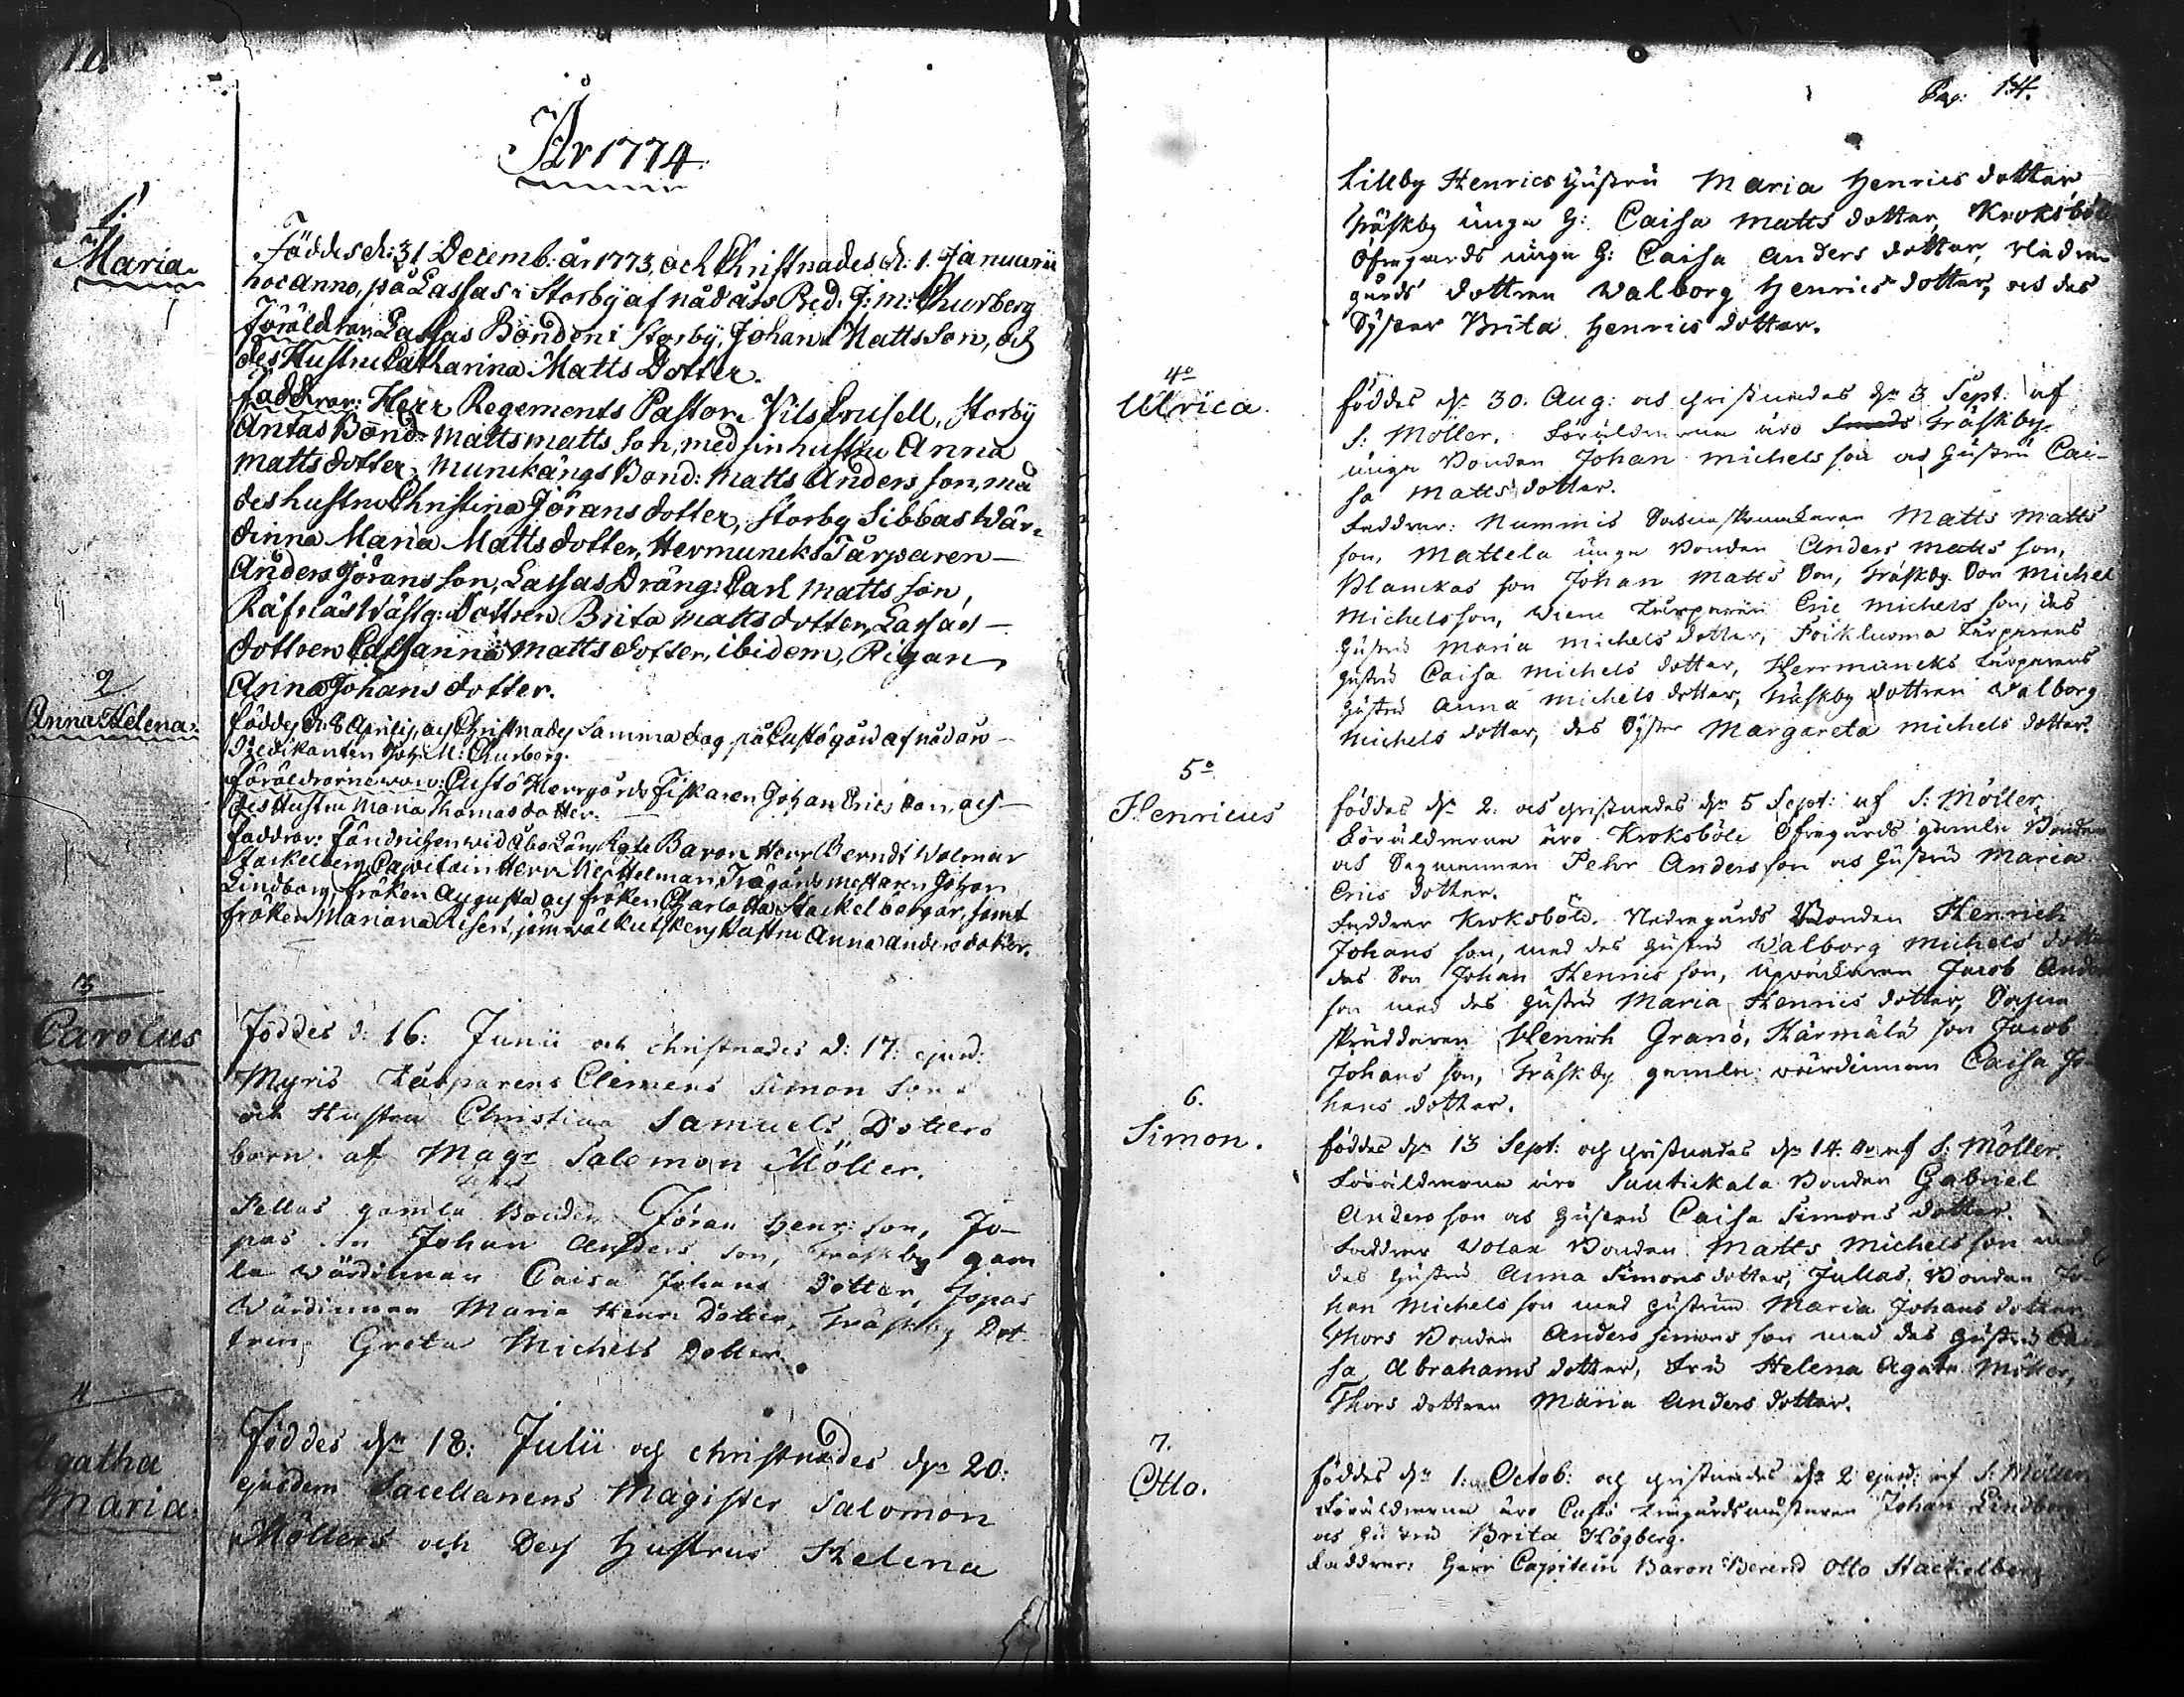 År 1774.
1.
Maria.
Föddes d: 31 Decemb: år 1773, och Christnades d: 1. Januarii
hoc anno, på Lassas i Storby af nåd års Pred: J: M: Churberg
Föräldrar Lassas Bonden i Storby, Johan Matts Son, och
des Hustru Catharina Matts Dotter.
faddrar: Herr Regements Pastor. Nils Storby
Antas Bond: Matts Matts son, med sin hustru Anna
Matts dotter, Munckängs Bond: Matts Anders son, med
des hustru Christina Jörans dotter, Storby Sibbas Wär-
dinna Maria Matts dotter, Hermuncks Tårparen
Anders Jörans son, Lassas Dräng: Carl Matts son,
Räfnäs Wästg: Dottren Brita Matts dotter, Lassas
dottren Catharina Matts dotter, ibidem, Pigan
Anna Johans dotter.
2
Anna Helena.
föddes d. 8 Aprilis, och Christnades samma dag på Custö gård af nåd års
Predikanten Joh: M: Churberg.
Föräldrarne woro: Custö Herrgårds Fiskaren Johan Erics Son, och
des Hustru Maria Thomas dotter.
faddrar: Fändrichen wid Åbo Läns Rgte Baron Herr Berndt Wolmar
Stackelberg, Capitain Herr Mestelman, Trägårds mästaren Johan
Lindborg, fröken Augusta och fröken Charlotta Stackelbergar, samt
fröken Mariana jemwäl Kuskens Hustru Anna Anders dotter.
3
Carolus
Föddes d: 16: Junii och Christnades d: 17: ejusd:
Myris Tårparens Clemens Simon Sons
och Hustru Christina Samuels Dotters
barn. af Mag: Salomon Möller.
Pellas gamla Bonden Jöran Henr: son, Jo-
pas Johan Anders son, Träskby gam
la wärdinnan Caisa Johans Dotter, Jopas
Wärdinnan Maria Henr: Dotter, Träskby Dot-
tren Greta Michels Dotter.
4
Agatha
Maria.
Föddes d: 18: Julii och Christnades d: 20:
ejusdem Sacellanens Magister Salomon
Möllers och Des Hustrus Helena
Pag: 134.
Lillby Henrics hustru Maria Henrics dotter,
Träskby unga h: Caisa Matts dotter, Kroksböle
Öfregårds unga h: Caisa Anders dotter, Nedre
gårds dottren Walborg Henrics dotter, och des
Syster Brita Henrics dotter.
4º
Ulrica.
föddes d: 30. Aug: och christnades d: 3 Sept: af
S: Möller. Föräldrarna äro Träskby
unga Bonden Johan Michels son och hustru Cai-
sa Matts dotter.
Faddrar: Nummis Matts Matts
son, Mattela unga Bonden Anders Matts son,
Blanckas son Johan Matts Son, Träskby Son Michel
Michelsson, Tårparen Eric Michels son, des
hustru Maria Michels dotter, Tårparens
hustru Caisa Michels dotter, Hermuncks Tårparens
hustru Anna Michels dotter, Träskby dottren Walborg
Michels dotter, des Syster Margareta Michels dotter.
5º
Henricus
föddes d: 2. och christnades d: 5 Sept: af S: Möller.
Föräldrarna äro Kroksböle Öfregårds gamla Bonden
och Pehr Anders son och hustru Maria
Erics dotter.
Faddrar Kroksböle Nedregårds Bonden Henrich
Johans son, med des hustru Walborg Michels dotter
des Son Johan Henrics son, Jacob Anders
son med des hustru Maria Henrics dotter, Sockne
skräddaren Henrich Granö, Kärmälä son Jacob
Johans son, Träskby gamla wärdinnan Caisa Jo-
hans dotter.
6.
Simon.
föddes d: 13 Sept: och christnades d: 14. af S: Möller.
Föräldrarna äro Suutickala Bonden Gabriel
Anders son och hustru Caisa Simons dotter.
Faddrar Bonden Matts Michels son med
des hustru Anna Simons dotter, Jullas Bonden Jo-
han Michels son med hustrun Maria Johans dotter
Thors Bonden Anders Simons son med des hustru Cai
sa Abrahams dotter, Fru Helena Agata Möller,
Thors dottren Maria Anders dotter.
7.
Otto.
föddes d: 1. Octob: och christnades d: 2 ejusd: af S: Möller
Föräldrarna äro Custö Johan Lindborg
och hustru Brita Högberg.
Faddrar: Herr Capitein Baron Berend Otto Stackelberg